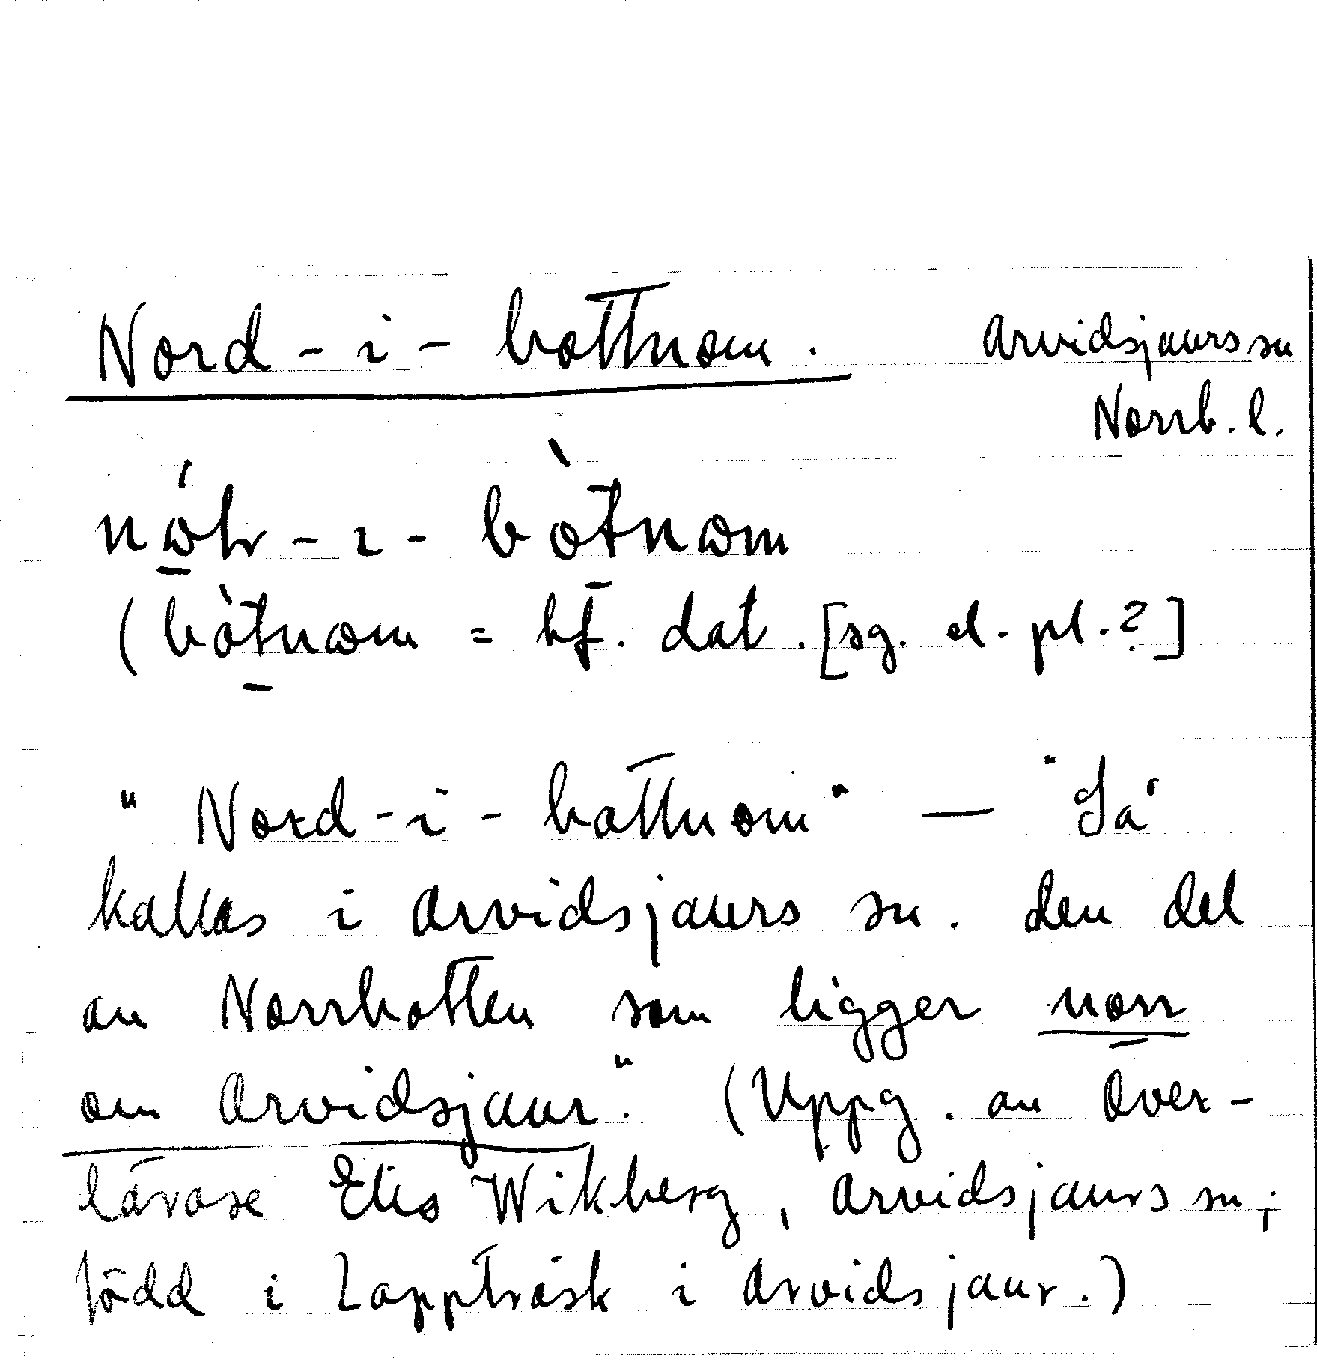 Nord-i-bottnom.
Arvidsjaurs sn
Norrb. l.
(bòtnωm = bf. dat. [sg. el. pl.?]
"Nord-i-bottnom" — "Så
kallas i Arvidsjaurs sn. den del
av Norrbotten som ligger norr
om Arvidsjaur." (Uppg. av Över-
lärare Elis Wikberg, Arvidsjaurs sn;
född i Lappträsk i Arvidsjaur.)